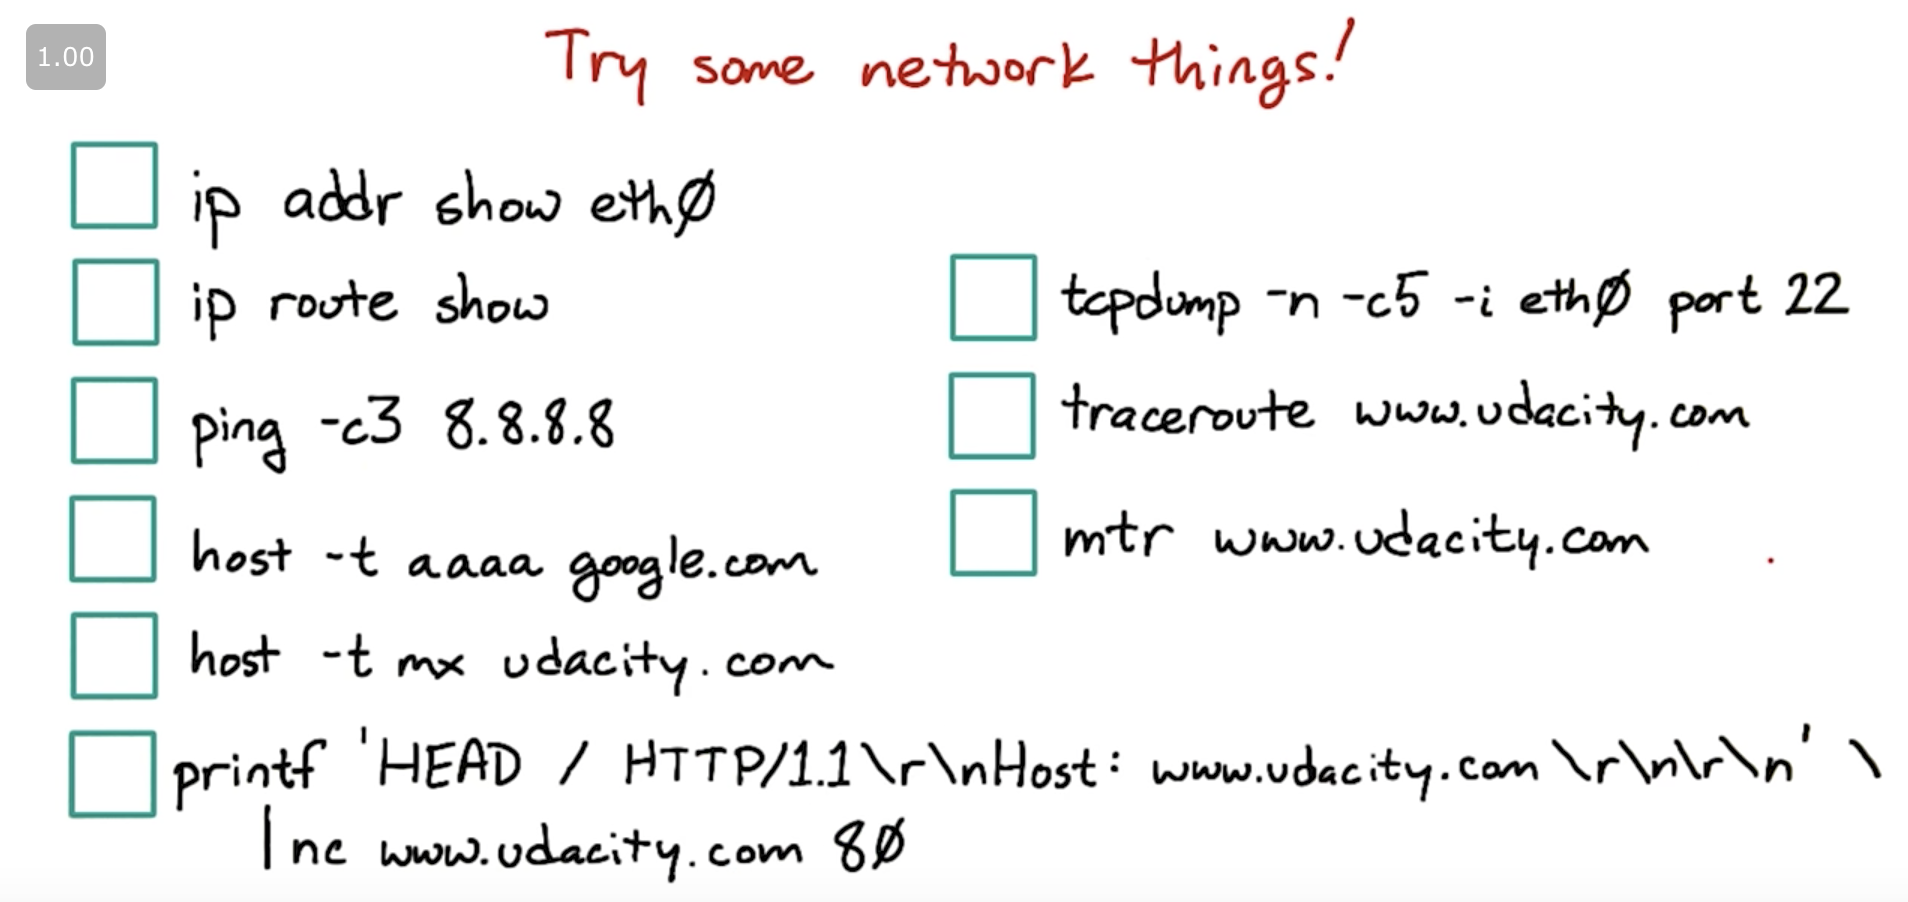 1.00
Try some network things!
ip addr show eth0
ip route show
ping -c3 8.8.8.8
host -t aaaa google.com
host -t mx udacity.com
printf 'HEAD / HTTP/1.1\r\nHost: www.udacity.com\r\n\r\n' \
| nc www.udacity.com 80
tcpdump -n -c5 -i eth0 port 22
traceroute www.udacity.com
mtr www.udacity.com